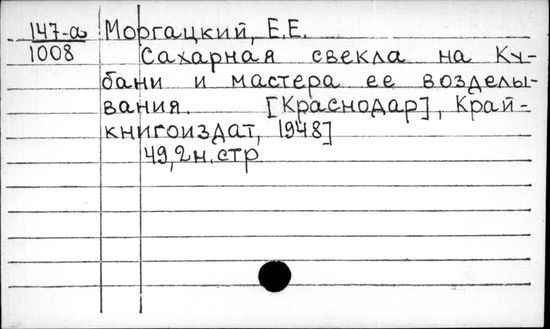 147-а Моргацкий, Е.Е.
1008 Сахарная свекла на Ку-
бани и мастера ее возделы-
вания. [Краснодар], Край-
книгоиздат, 1948]
49,2н.стр